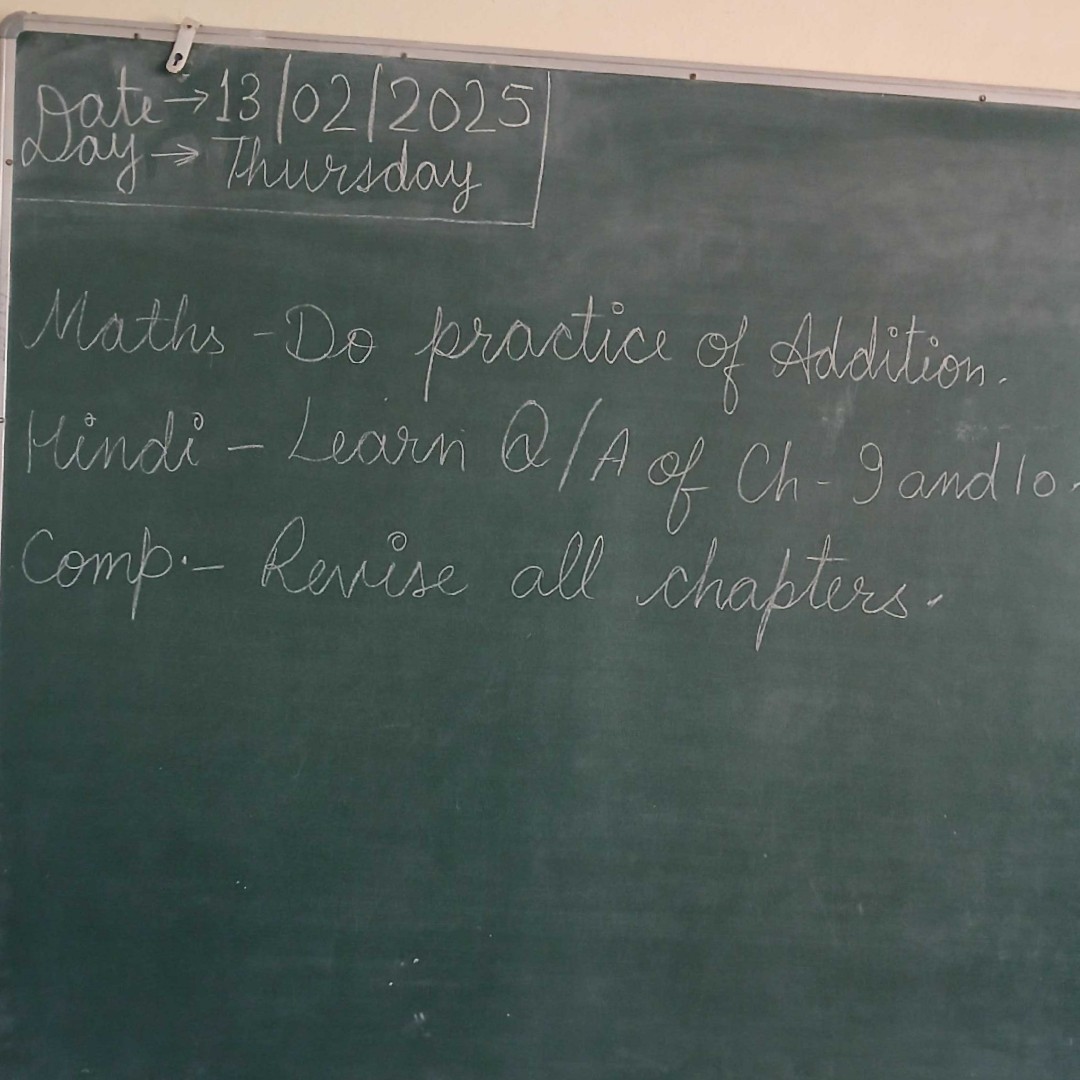 Date → 13/02/2025
Day → Thursday
Maths - Do practice of Addition.
Hindi - Learn Q/A of Ch - 9 and 10.
Comp. - Revise all chapters.